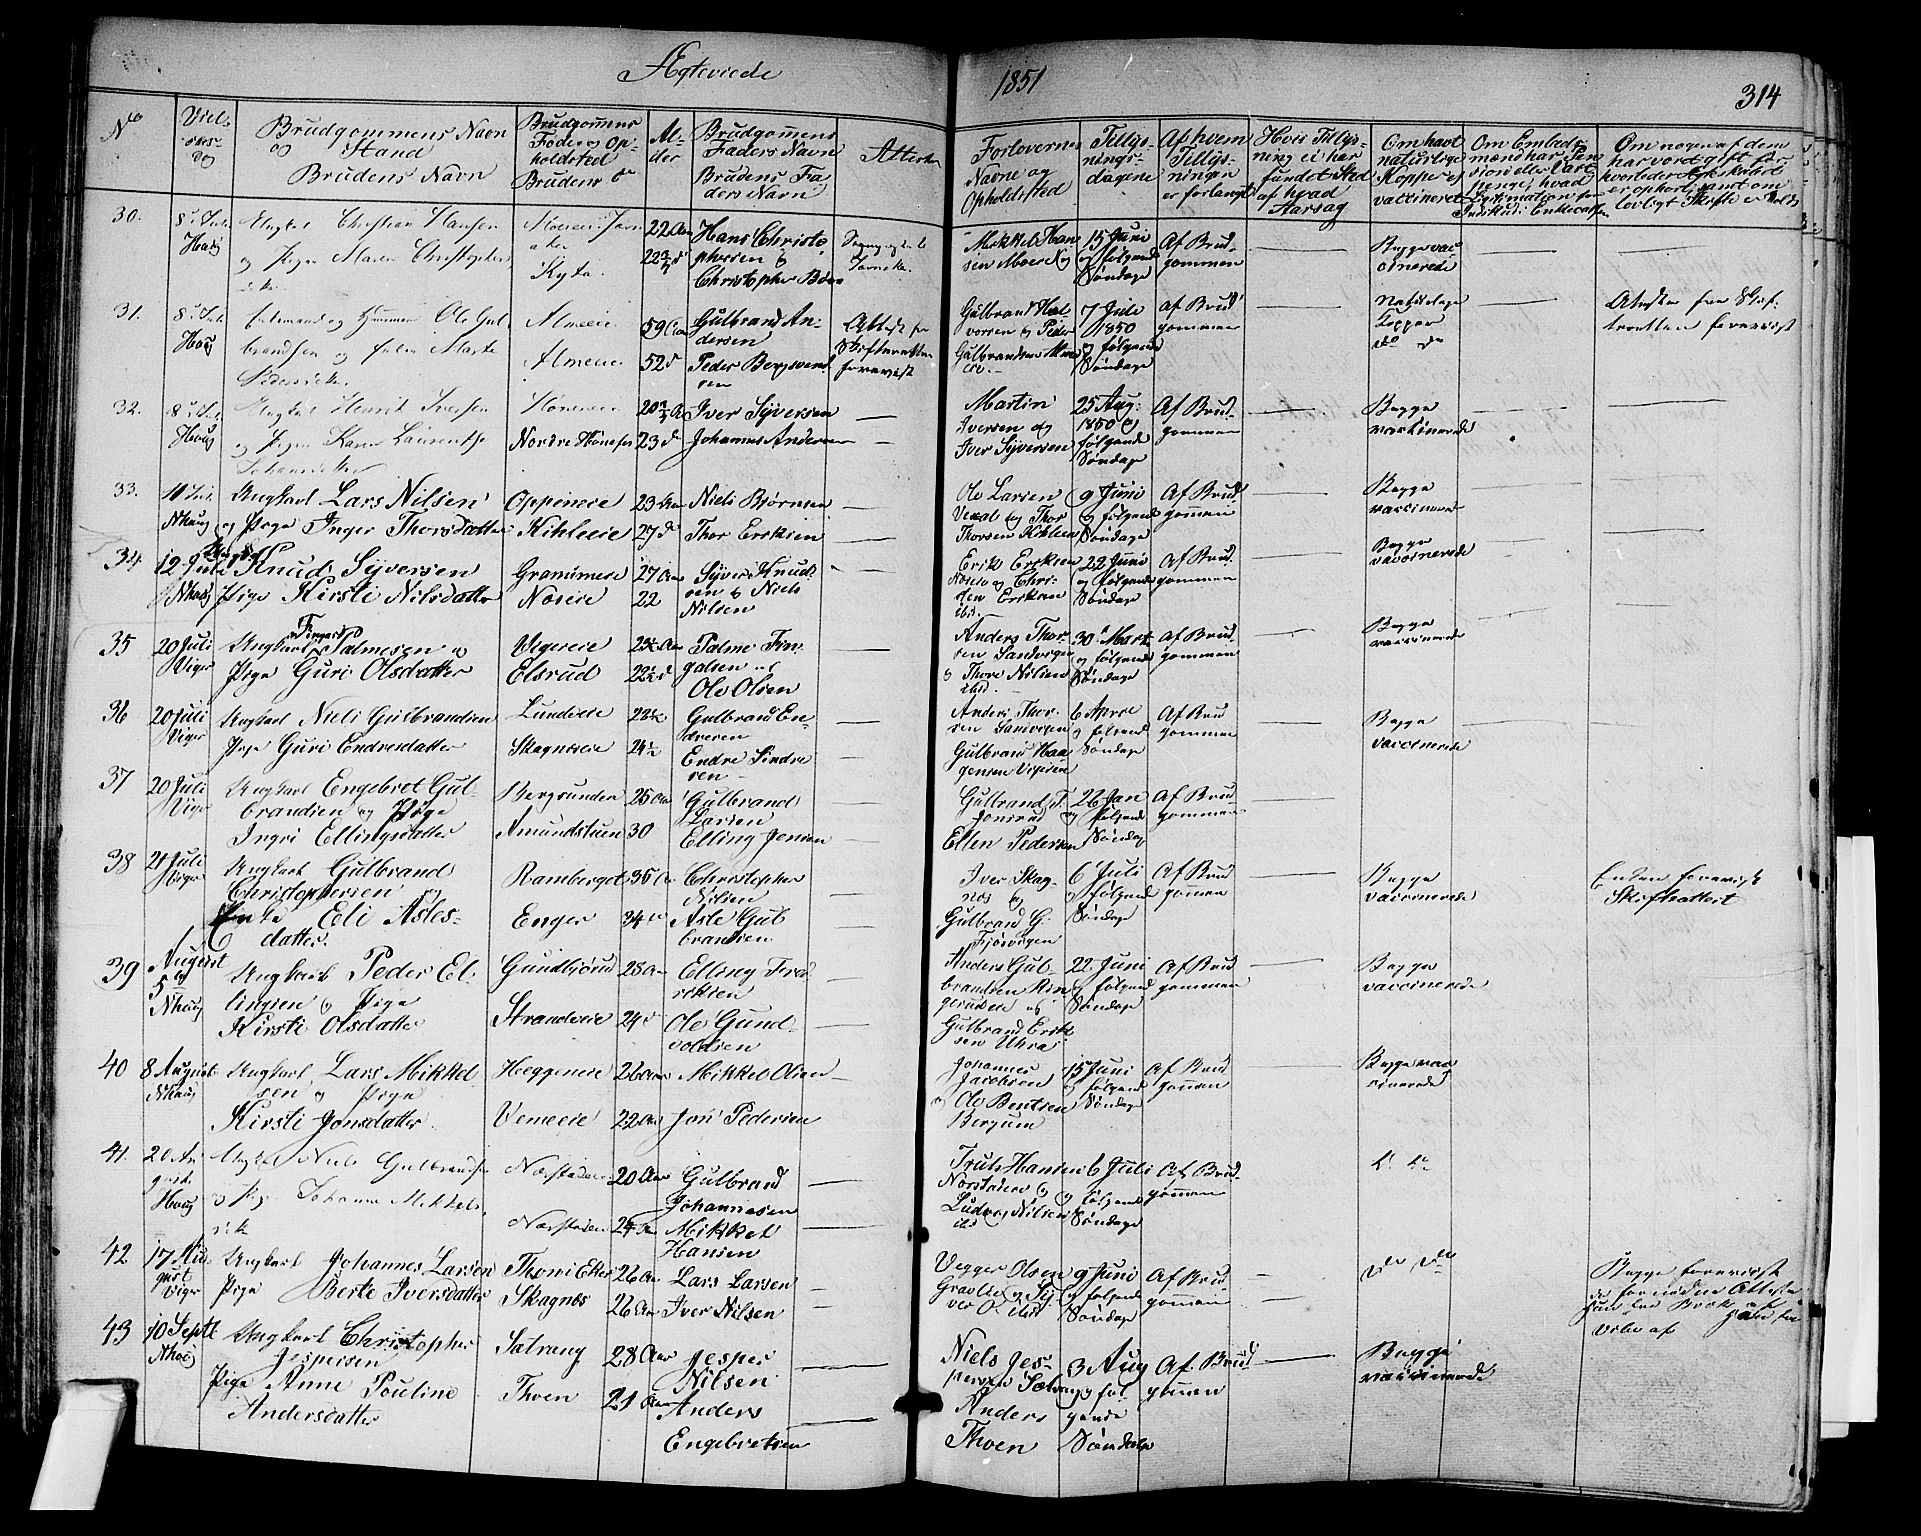 Ægteviede
1851
314
No
Viel-
ses-
Dag
Brudgommens Navn
og Stand
Brudens Navn
Brudgommens
Føde og Op-
holdsted
Brudens do
Al-
der
Brudgommens
Faders Navn
Brudens Fa-
ders Navn
Attester
Forlovernes
Navne og
Opholdsted
Tillys-
nings-
dagene
Af hvem
Tillys-
ningen
er forlangt
Hvis Tillys-
ning ei har
fundet Sted
af hvad
Aarsag
Om havt
naturlige
Kopper og
vaccineret
Om nogen af dem
har vort gift før
hvorledes Ægteskabet
er ophort, samt om
lovligt Skifte er holdt
30.
8de Juli
Houg
Ungkarl Christian Hansen
og Pige Maren Christophers
Moeneie
Kyto
22 Aar
Hans Christo
phersen og
Christopher
Mikkel Han
sen Moeneie
15 Juni
og følgende
Søndage
Af Brud-
gommen
Begge vac
cinerede
31.
8de Juli
Houg
Ole Gul
brandsen og Enke Marte
Pedersdtr
Almeie
Almeie
59 Aar
52 d
Gulbrand An-
dersen
Peder Bergsvend
sen
Attest fra
Skifteretten
forevist
Gulbrand Hal
vorsen og Peder
Gulbrandsen
7 Juli
1850
og følgende
Søndage
af Brud
gommen
naturlige
Kopper
do do
Attester fra Skif-
teretten forevist
32.
8de Juli
Houg
Ungkarl Henrik Iversen
og Pige Karen Laurentse
Johannesdtr
Høneneie
Nordre Hønefos
23 d
Iver Syversen
Johannes Andersen
Martin
Iversen og
Iver Syversen
25 Aug:
1850 og
følgende
Søndage
Af Brud-
gommen
Begge
vaccinerede
33.
11 Juli
Nhaug
Ungkarl Lars Nilsen
og Pige Inger Thorsdatter
Oppeneie
Kihleeie
23 Aar
27 d
Niels Bjørnsen
Thor Ericksen
Ole Larsen
og Thor
Thorsen Kihleeie
9 Juni
og følgende
Søndage
Af Brud
gommen
Begge
vaccinerede
34
12 Juli
Nhaug
Knud Syversen
Pige Kirsti Nilsdatter
Noreie
27 Aar
22
Syver Knud
sen og Niels
Nilsen
Erik Ericksen
22 Juni
og følgende
Søndage
Af Brud
gommen
Begge
vaccinerede
35
20 Juli
Viger
Ungkarl Fingar Palmesen og
Pige Guri Olsdatter
Vigereie
Elsrud
Palme Fin
galsen og
Ole Olsen
Anders Thor-
sen Sandvigen
og Thore Nilsen
ibid.
30 Marts
og følgende
Søndage
af Brud
gommen
Begge
vaccinerede
36
20 Juli
Viger
Ungkarl Niels Gulbrandsen
Pige Guri Endresdatter
Lundeeie
Skagneseie
24½
Gulbrand En-
dresen
Endre Sindre
sen
Anders Thor-
sen Sandvigen
Gulbrand Haa
gensen
6 Apr
og følgende
Søndage
Af Brud
gommen
Begge
vaccinerede
37
20 Juli
Viger
Ungkarl Engebret Gul-
brandsen og Pige
Ingri Ellingsdatter
Bergsunden
Amundstuen
25 Aar
30
Gulbrand
Larsen
Elling Jensen
Gulbrand T.
Jonsrud
Ellen Pedersen
26 Jan
og følgende
Søndag
Af Brud
gommen
38
21 Juli
Viger
Ungkarl Gulbrand
Christophersen og
Enke Eli Asles-
datter
Ramberget
Enger
35 Aar
34 d
Christopher
Nilsen
Asle Gul
brandsen
Iver Skag-
nes og
Gulbrand G.
Fjøsvigen
6 Juli
og følgende
Søndage
Af Brud
gommen
Begge
vaccinerede
Enken forevist
Skifteattest
39
August
5
Nhaug
Ungkarl Peder El-
lingsen og Pige
Kirsti Olsdatter
Gundbjørud
Strandeeie
25 Aar
24 d
Elling Fre
ricksen
Ole Gund-
voldsen
Anders Gul-
brandsen Rin
gerudeie og
Gulbrand Erik
sen Uhra
22 Juni
og følgende
Søndage
Af Brud
gommen
Begge
vaccinerede
40
8 August
Nhaug
Ungkarl Lars Mikkel
sen og Pige
Kirsti Jonsdatter
Heggeneie
Vemeeie
26 Aar
22 Aar
Mikkel Olsen
Jon Pedersen
Johannes
Jacobsen
og Ole Bentsen
Bergum
15 Juni
og følgende
Søndage
Af Brud
gommen
Begge vac
cinerede
41.
20 Au
gust
Houg
Ungkarl Niels Gulbrandsen
og Pige Johanne Mikkels
dtr
Nærstadeie
Nærstadeie
20 Aar
Gulbrand
Johannesen
Mikkel
Hansen
Truls Hansen
Norstadeie og
Ludvig Nilsen
ibid
6 Juli
og følgende
Søndage
Af Brud-
gommen
do do
42
17 Au-
gust
Viger
Ungkarl Johannes Larsen
Pige Berte Iversdatter
Skagnes
26 Aar
26 Aar
Lars Larsen
Iver Nilsen
Vegger Olsen
9 Juni
og følgende
Søndage
Af Brud
gommen
do do
Begge forevist
de fornødne Attester
43
10 Septr
Nhoug
Ungkarl Christopher
Jespersen
Pige Anne Pouline
Andersdatter
Sætrang
Thoen
28 Aar
21 Aar
Jesper
Nilsen
Anders
Engebretsen
Niels Jes-
persen Sætrang
Anders
Thoen
3 Aug
og føl-
gende
Søndage
Af Brud
gommen
Begge
vaccinerede